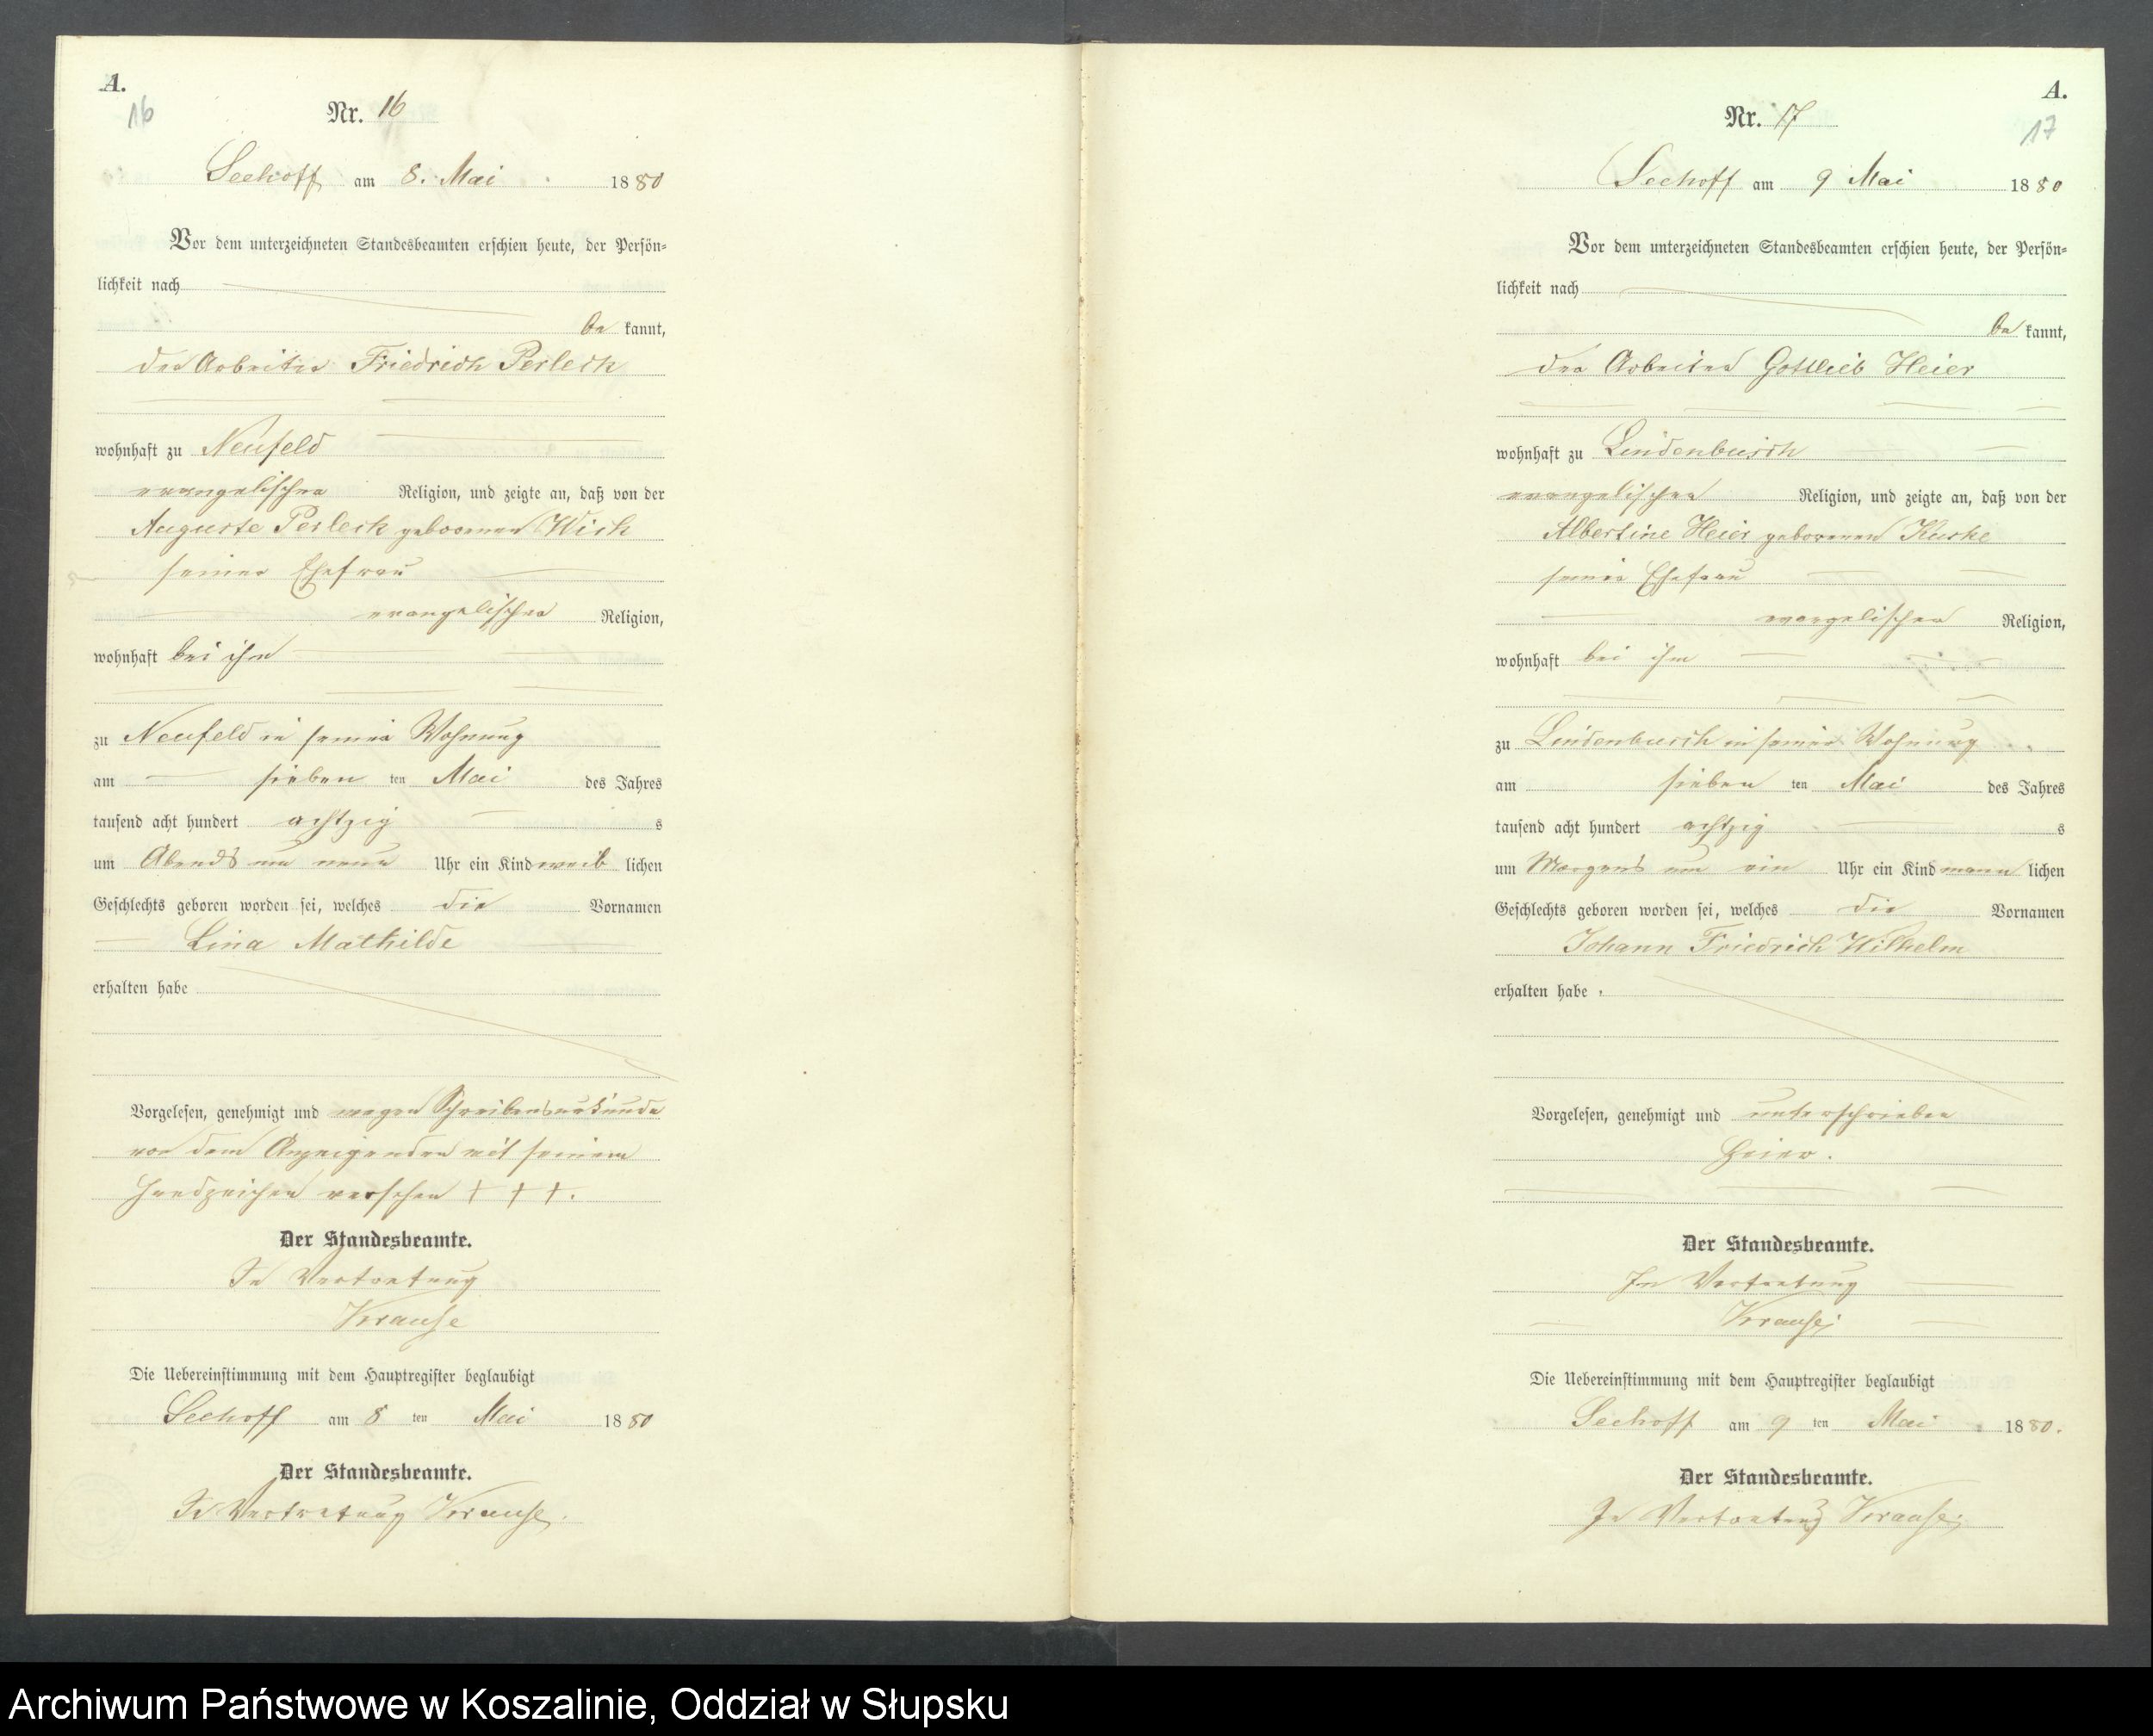 A.
16
Nr. 16
Seehoff am 8. Mai 1880
Vor dem unterzeichneten Standesbeamten erschien heute, der Persön-
lichkeit nach
be kannt,
der Arbeiter Friedrich Perleck
wohnhaft zu Neufeld
evangelischer Religion, und zeigte an, daß von der
Auguste Perleck geborenen
seiner Ehefrau
evangelischer Religion,
wohnhaft bei ihm
zu Neufeld in seiner Wohnung
am sieben ten Mai des Jahres
tausend acht hundert achtzig s
um Abends um neun Uhr ein Kind weib lichen
Geschlechts geboren worden sei, welches die Vornamen
Lina Mathilde
erhalten habe
Vorgelesen, genehmigt und wegen Schreibensunkunde
von dem Anzeigenden mit seinem
Handzeichen versehen + + +.
Der Standesbeamte.
In Vertretung
Krause
Die Uebereinstimmung mit dem Hauptregister beglaubigt
Seehoff am 8 ten Mai 1880
Der Standesbeamte.
In Vertretung Krause.
A.
17
Nr. 17
Seehoff am 9 Mai 1880
Vor dem unterzeichneten Standesbeamten erschien heute, der Persön-
lichkeit nach
be kannt,
der Arbeiter Gottlieb Heier
wohnhaft zu Lindenbusch
evangelischer Religion, und zeigte an, daß von der
Albertine Heier geborenen Kuske
seiner Ehefrau
evangelischer Religion,
wohnhaft bei ihm
zu Lindenbusch in seiner Wohnung
am sieben ten Mai des Jahres
tausend acht hundert achtzig s
um Morgens um ein Uhr ein Kind männ lichen
Geschlechts geboren worden sei, welches die Vornamen
Johann Friedrich Wilhelm
erhalten habe
Vorgelesen, genehmigt und unterschrieben
Heier.
Der Standesbeamte.
In Vertretung
Krause
Die Uebereinstimmung mit dem Hauptregister beglaubigt
Seehoff am 9 ten Mai 1880.
Der Standesbeamte.
In Vertretung Krause
Archiwum Państwowe w Koszalinie, Oddział w Słupsku